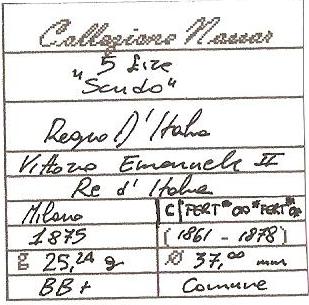 Collezione Nassar
5 Lire
"Scudo"
Regno D'Italia
Vittorio Emanuele II
Re d'Italia
Milano C/FERT
1875 (1861 - 1878)
g 25,24 g Ø 37,00 mm
BB+ Comune